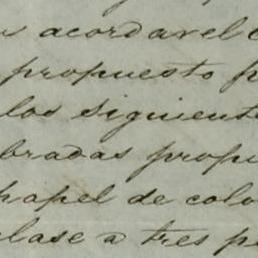 s acordar el C
propuesto p
los siguiente
bradas propu
papel de colo
clase a tres pe